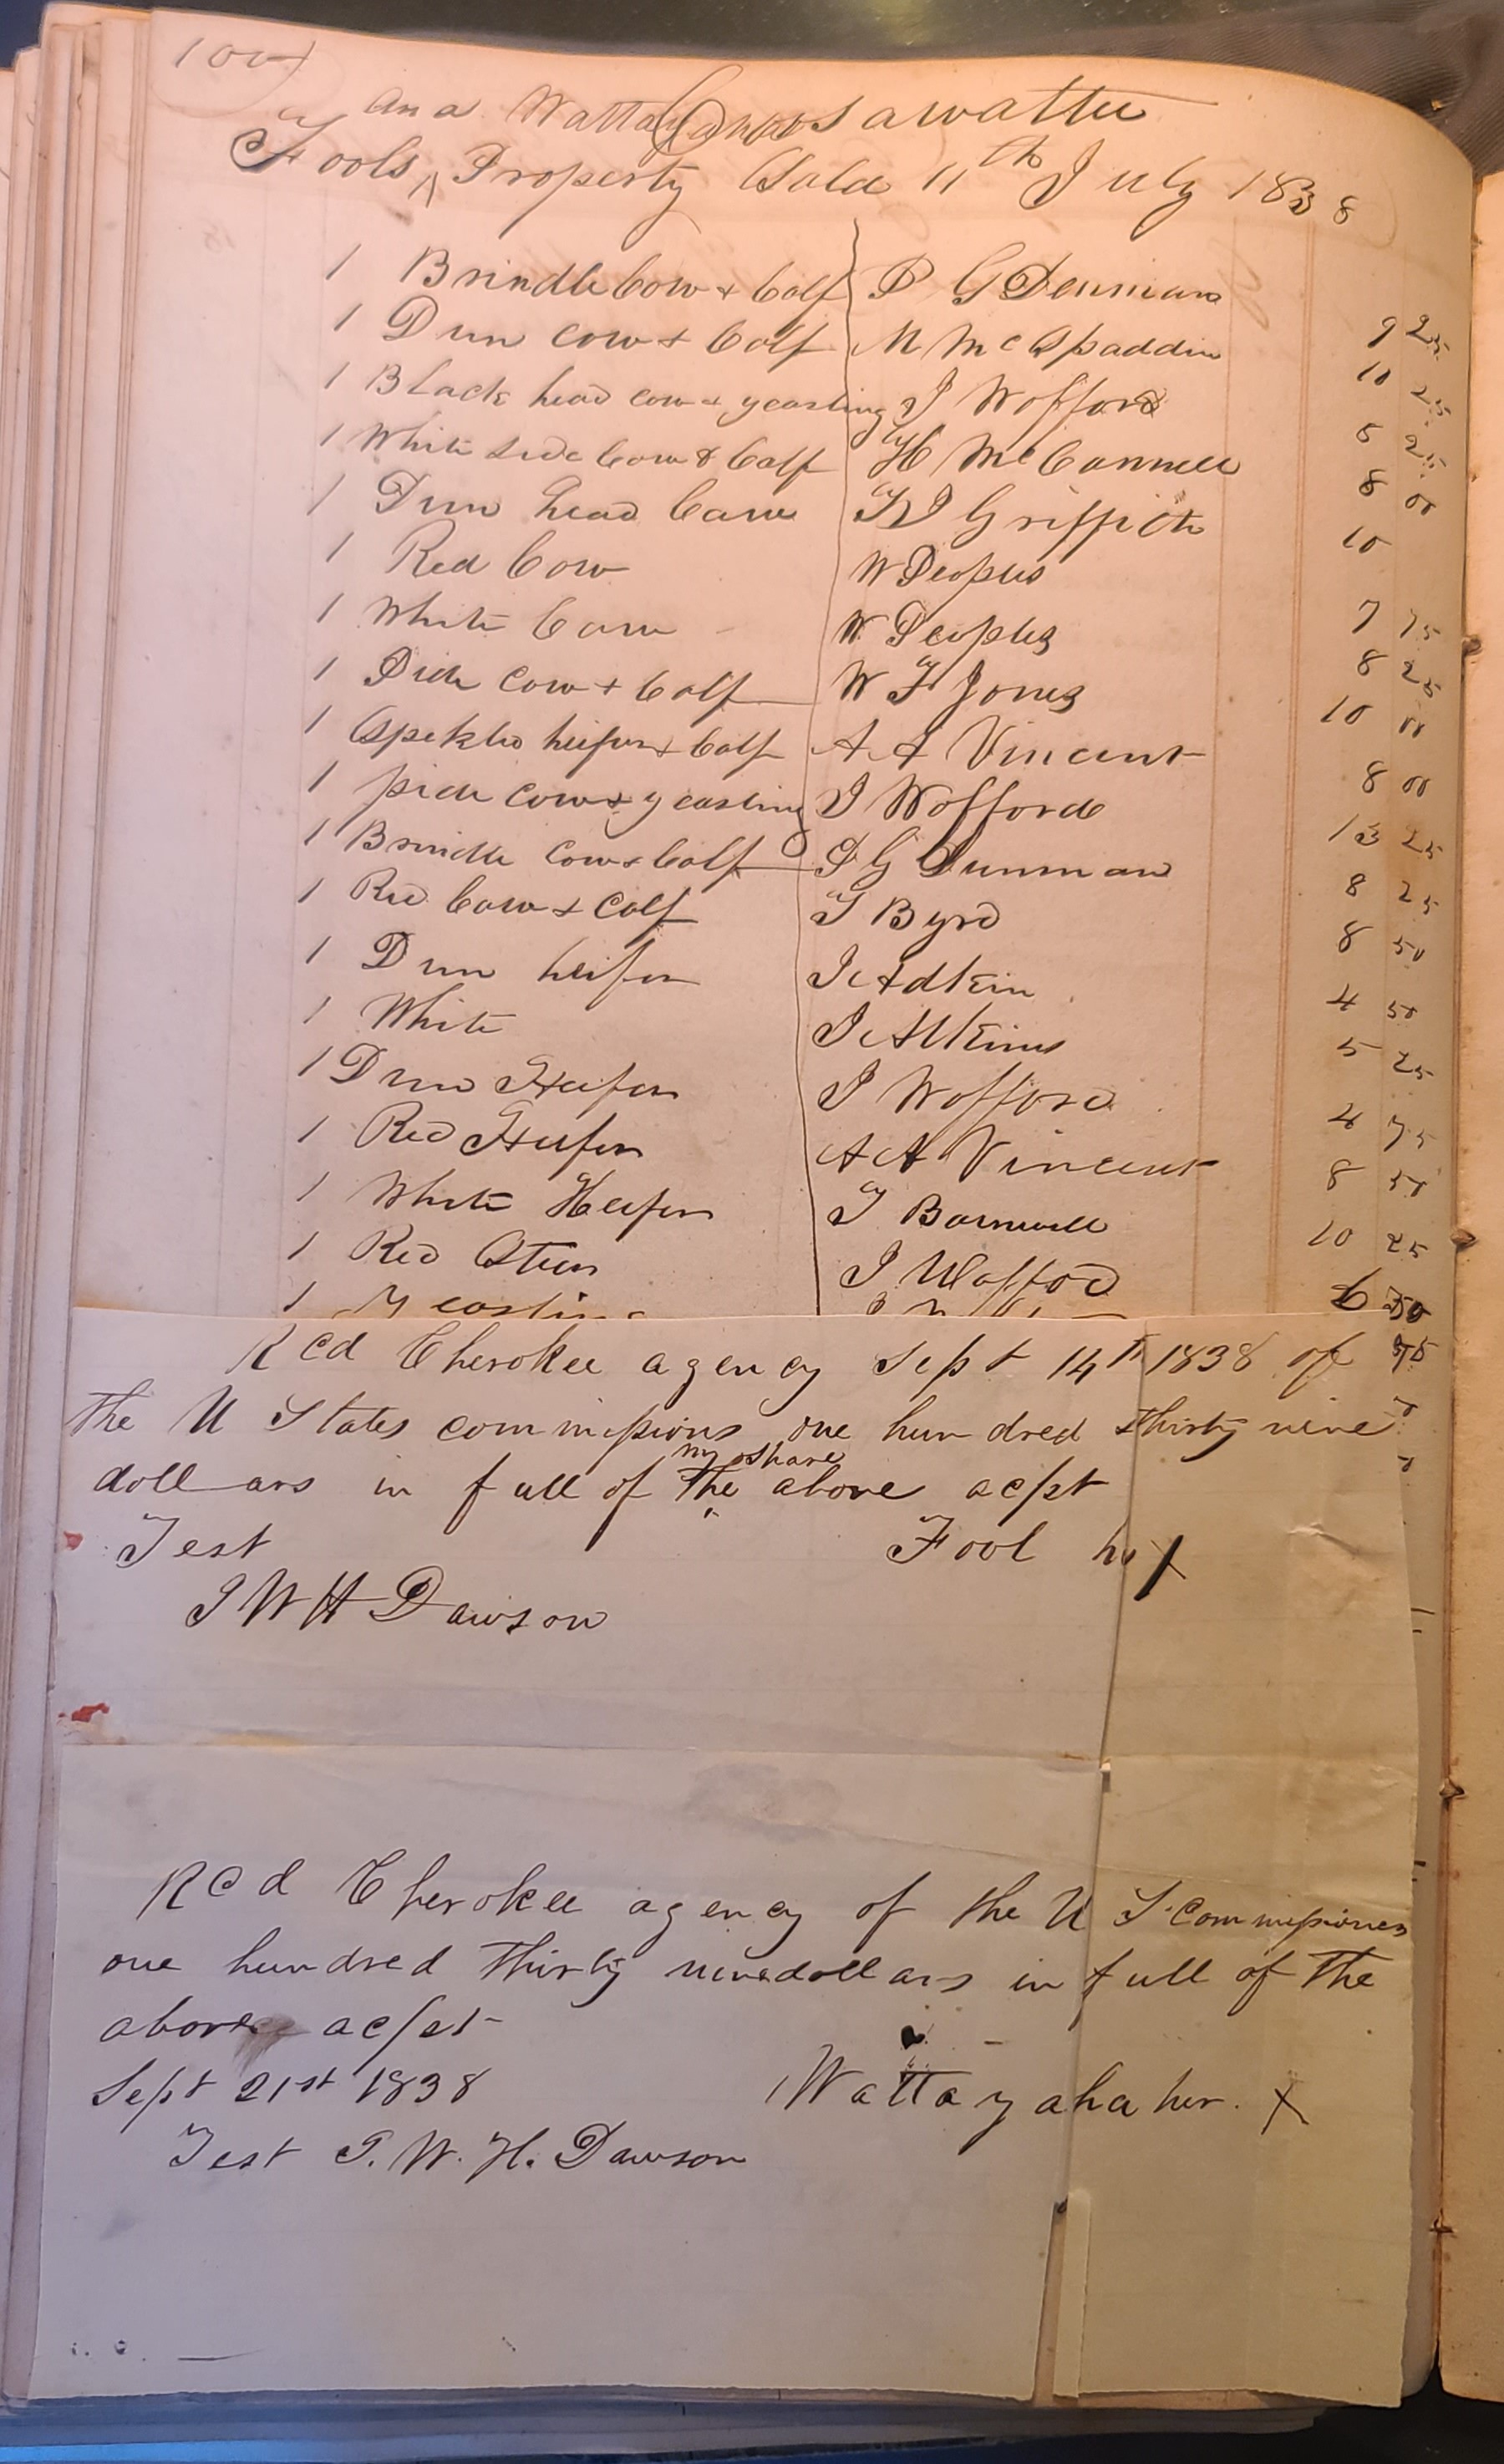 100
and Wattayaha Coosawattee
Fools, Property Sold 11th July 1838
1 Brindle Cow & Calf P G Denman 9 25
1 Dun Cow & Calf M McSpaddin 10 25
1 Black head cow & yearling J Wofford 5 25
1 White side Cow & Calf H McConnell 8 00
1 Dun head Cow T J Griffith 10
1 Red Cow W Peoples 7 75
1 White Cow W Peoples 8 25
1 Pide Cow & Calf W F Jones 10 00
1 Spekled heifer & Calf A A Vincent 8 00
1 pide Cow & yearling J Wofford 13 25
1 Brindle Cow & Calf P G Dunman 8 25
1 Red Cow & Calf T Byrd 8 50
1 Dun heifer J Adkin 4 50
1 White J Atkins 5 25
1 Dun Heifer J Wofford 4 75
1 Red Heifer A A Vincent 8 50
1 White Heifer T Barnwell 10 25
1 Red Steer J Wofford 6 50
1 Yearling 75
Rcd Cherokee agency Sept 14th 1838 of
the U States commissions one hundred thirty nine
my share
dollars in full of the above acpt
Test Fool his X
J W H Dawson
Rcd Cherokee agency of the U S. Commissiones
one hundred thirty ninedollars in full of the
above acpt
Sept 21st 1838 Wattayaha her. X
Test J. W. H. Dawson